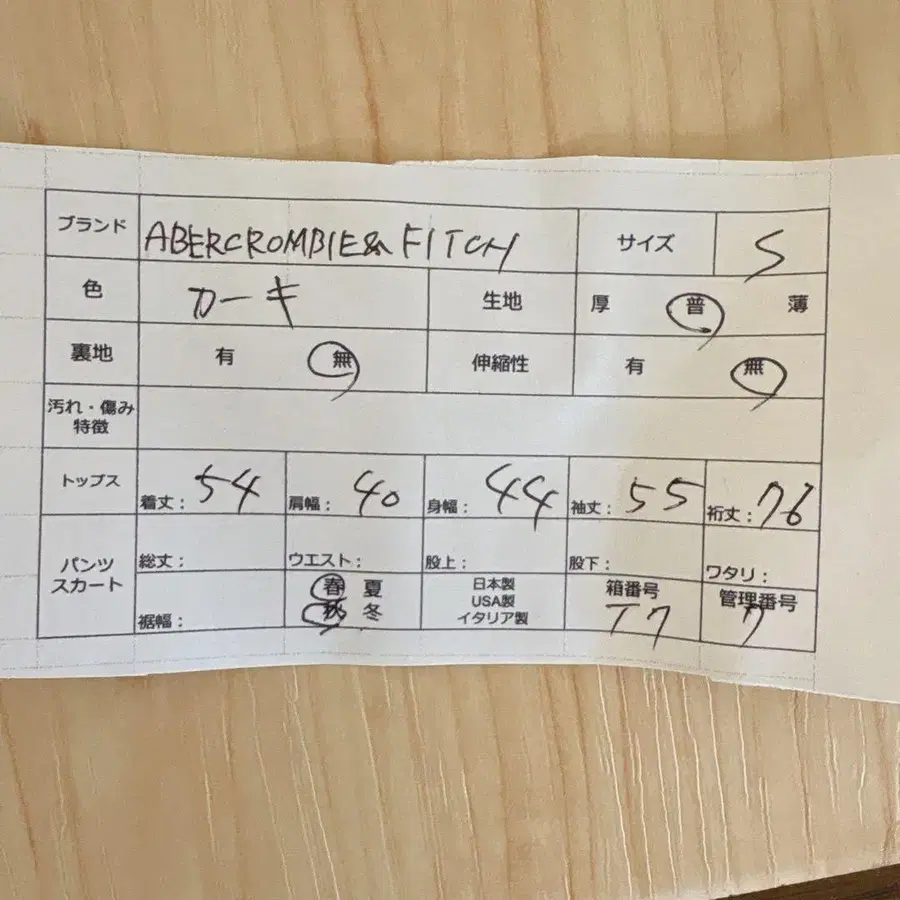 ブランド ABERCROMBIE& FITCH サイズ S
色 カーキ 生地 厚 普 薄
裏地 有 無 伸縮性 有 無
汚れ・傷み
特徴
トップス 着丈: 54 肩幅: 40 身幅: 44 袖丈: 55 裄丈: 76
パンツ
スカート
総丈: ウエスト: 股上: 股下: ワタリ:
裾幅:
春 夏
秋 冬
日本製
USA製
イタリア製
箱番号
T7
管理番号
7